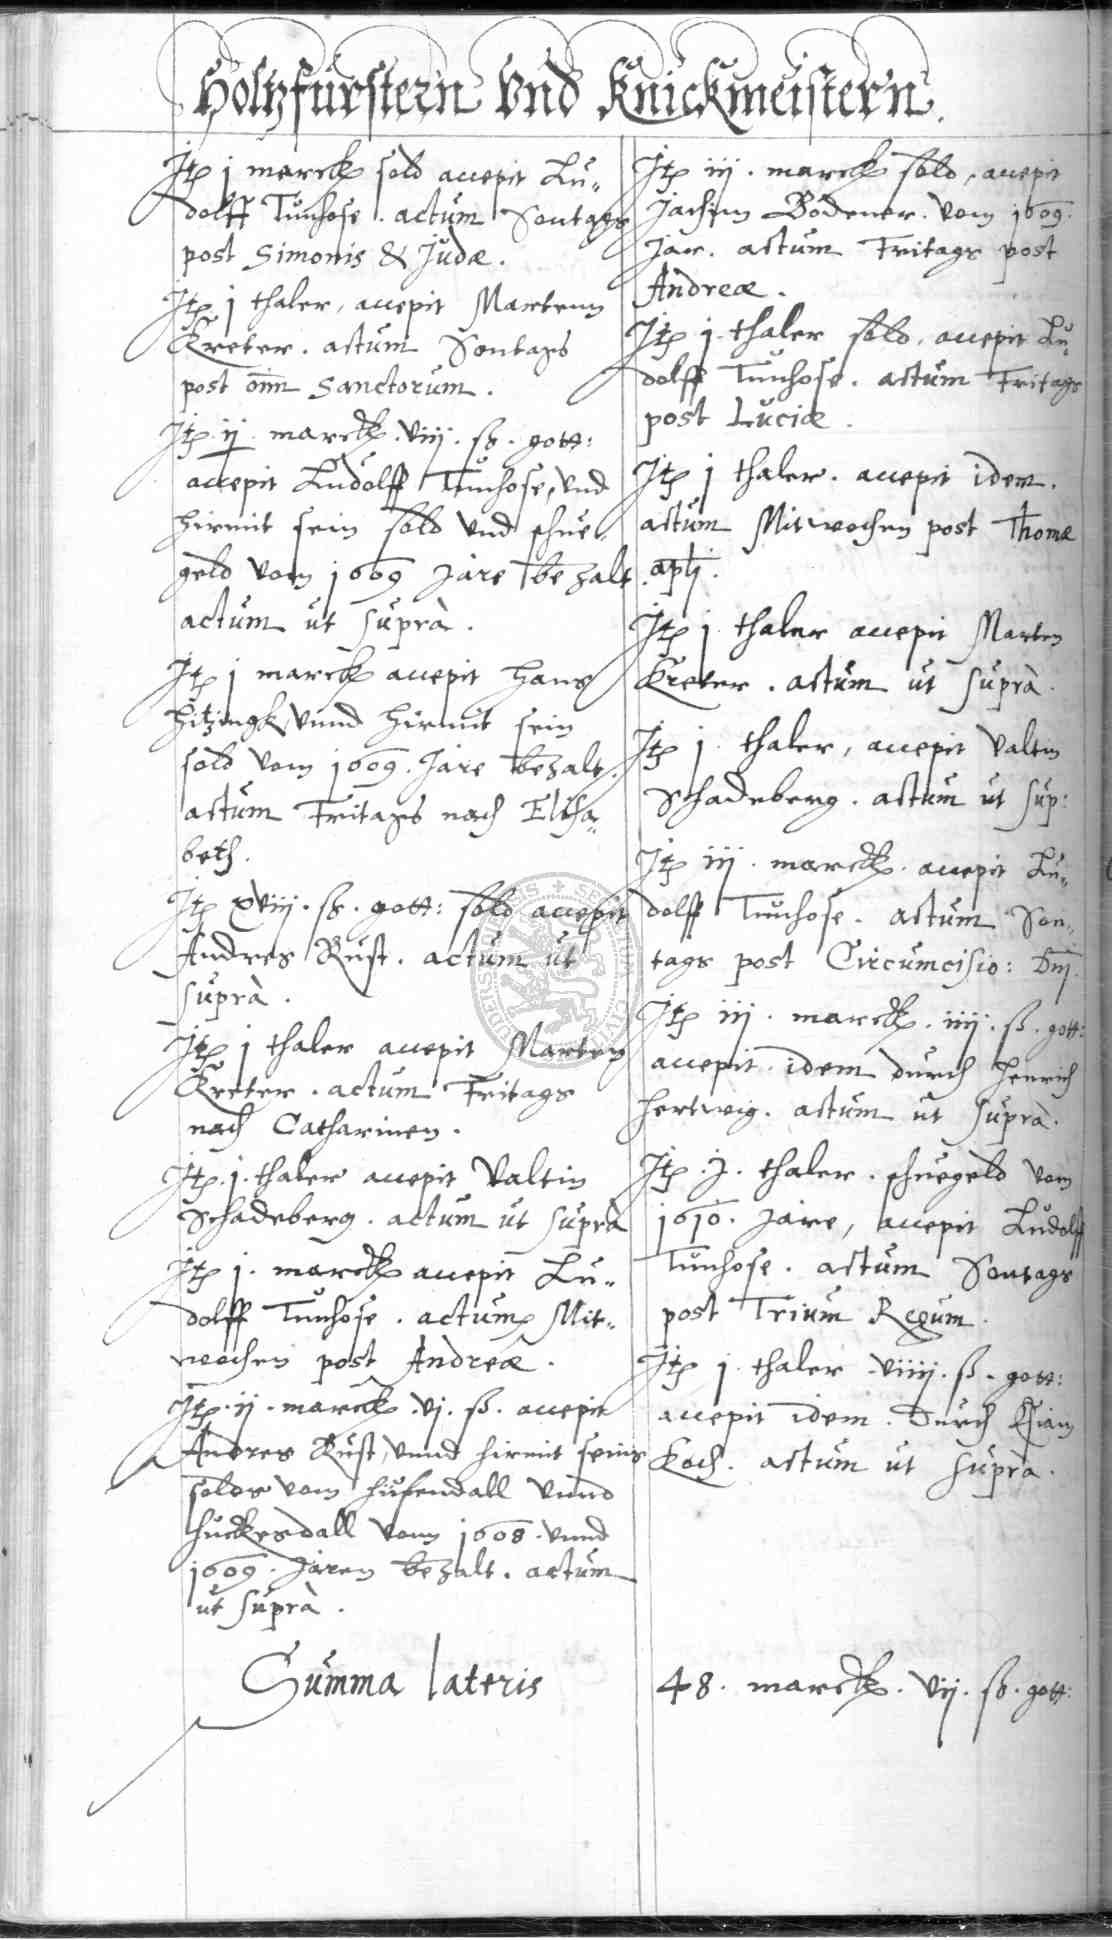 Holtzfürstern Vnd Knickmeistern.
Itp j marck sold accepit Lu„
dolff Tunhose. actum Sontags
post Simonis & Judæ.
Itp j thaler, accepit Martenn
Kreter. actum Sontags
post oim Sanctorum.
Itp ij marck. viij. ß. gott:
accepit Ludolff Tunhose, vnd
hirmit sein sold vnd schue„
geld vom 1609 Jare bezalt
actum ut suprà.
Itp j marck accepit Hans
Hitzingk, vnnd hirmit sein
sold vom 1609. Jare bezalt.
actum Fritags nach Elisa„
beth.
Itp xviij. ß. gott: sold accepit
Andres Rust. actum ut
suprà.
Itp j thaler accepit Marten
Kreter. actum Fritags
nach Catharinen.
Itp. j. thaler accepit Valtin
Schadeberg. actum ut suprà
Itp j. marck accepit Lu„
dolff Tunhose. actum Mit„
wochen post Andreæ.
Itp. ij. marck. vj. ß. accepit
Andres Rust, vnnd hirmit seins
soldes vom Hüfendall vnnd
Huckesdall vom 1608. vnnd
1609. Jaren bezalt. actum
ut suprà.
Itp iij. marck sold, accepit
Jachim Bödener. vom 1609.
Jar. actum Fritags post
Andreæ.
Itp j. thaler sold, accepit Lu„
dolff Tunhose. actum Fritags
post Luciæ.
Itp j thaler. accepit idem.
actum Mitwochen post Thomæ
apli.
Itp j thaler accepit Marten
Kreter. actum ut suprà.
Itp j. thaler, accepit Valtin
Schadeberg. actum ut sup:
Itp iij. marck. accepit Lu„
dolff Tunhose. actum Son„
tags post Circumcisio: Dni.
Itp iij. marck. iiij. ß. gott:
accepit idem durch Henrich
Hertwig. actum ut suprà.
Itp. j. thaler. schuegeld vom
1610. Jare, accepit Ludolff
Tunhose. actum Sontags
post Trium Regum.
Itp j thaler viiij. ß. gott:
accepit idem. Durch
Koch. actum ut suprà.
Summa lateris 48. marck. vij. ß. gott: